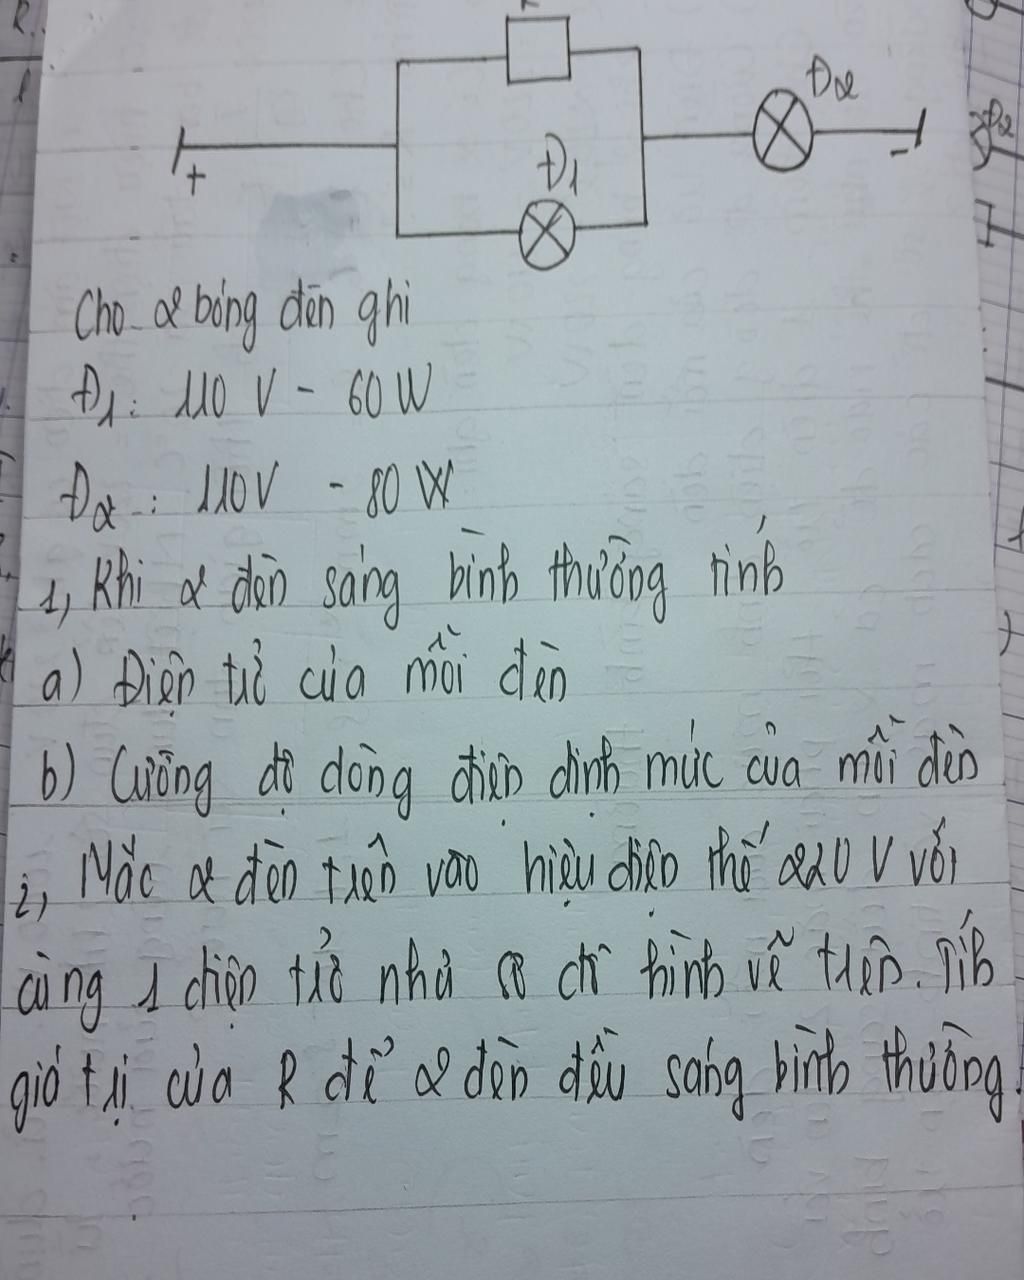 Đ2
Đ1
+
-
Cho 2 bóng đèn ghi
Đ1: 110 V - 60 W
Đ2: 110V - 80 W
1, Khi 2 đèn sáng bình thường tính
a) Điện trở của mỗi đèn
b) Cường độ dòng điện định mức của mỗi đèn
2, Mắc 2 đèn trên vào hiệu điện thế 220 V với
cùng 1 điện trở như sơ đồ hình vẽ trên. Tính
giá trị của R để 2 đèn đều sáng bình thường.